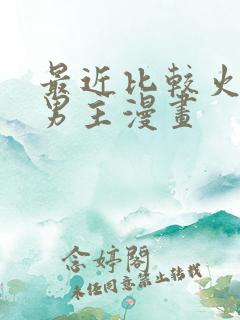 最近比較火
男主漫畫
念婷閣
未经同意禁止转载